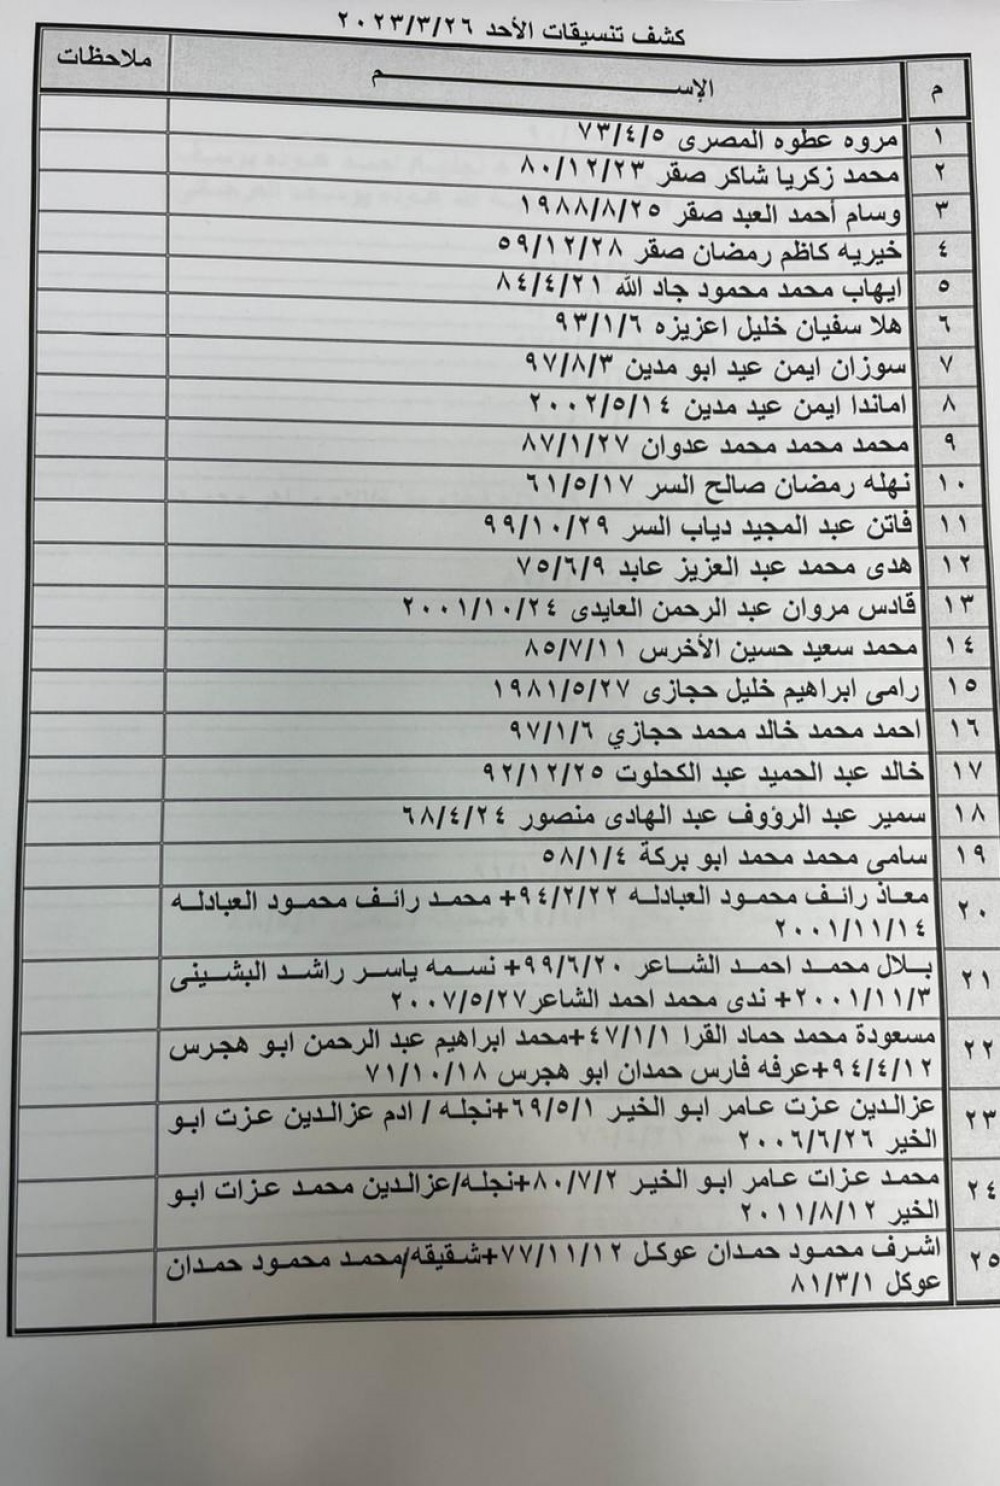 كشف تنسيقات الأحد ٢٠٢٣/٣/٢٦
م الإســـــــــم ملاحظات
١ مروه عطوه المصرى ٧٣/٤/٥
٢ محمد زكريا شاكر صقر ٨٠/١٢/٢٣
٣ وسام أحمد العبد صقر ١٩٨٨/٨/٢٥
٤ خيريه كاظم رمضان صقر ٥٩/١٢/٢٨
٥ ايهاب محمد محمود جاد الله ٨٤/٤/٢١
٦ هلا سفيان خليل اعزيزه ٩٣/١/٦
٧ سوزان ايمن عيد ابو مدين ٩٧/٨/٣
٨ اماندا ايمن عيد مدين ٢٠٠٢/٥/١٤
٩ محمد محمد محمد عدوان ٨٧/١/٢٧
١٠ نهله رمضان صالح السر ٦١/٥/١٧
١١ فاتن عبد المجيد دياب السر ٩٩/١٠/٢٩
١٢ هدى محمد عبد العزيز عابد ٧٥/٦/٩
١٣ قادس مروان عبد الرحمن العايدى ٢٠٠١/١٠/٢٤
١٤ محمد سعيد حسين الأخرس ٨٥/٧/١١
١٥ رامى ابراهيم خليل حجازى ١٩٨١/٥/٢٧
١٦ احمد محمد خالد محمد حجازي ٩٧/١/٦
١٧ خالد عبد الحميد عبد الكحلوت ٩٢/١٢/٢٥
١٨ سمير عبد الرؤوف عبد الهادى منصور ٦٨/٤/٢٤
١٩ سامى محمد محمد ابو بركة ٥٨/١/٤
٢٠ معاذ رائف محمود العبادله ٩٤/٢/٢٢+ محمد رائف محمود العبادله
٢٠٠١/١١/١٤
٢١ بلال محمد احمد الشاعر ٩٩/٦/٢٠+ نسمه ياسر راشد البشينى
٢٠٠١/١١/٣+ ندى محمد احمد الشاعر٢٠٠٧/٥/٢٧
٢٢ مسعودة محمد حماد القرا ٤٧/١/١+محمد ابراهيم عبد الرحمن ابو هجرس
٩٤/٤/١٢+عرفه فارس حمدان ابو هجرس ٧١/١٠/١٨
٢٣ عزالدين عزت عامر ابو الخير ٦٩/٥/١+نجله / ادم عزالدين عزت ابو
الخير ٢٠٠٦/٦/٢٦
٢٤ محمد عزات عامر ابو الخير ٨٠/٧/٢+نجله/عزالدين محمد عزات ابو
الخير ٢٠١١/٨/١٢
٢٥ اشرف محمود حمدان عوكل ٧٧/١١/١٢+شقيقه/محمد محمود حمدان
عوكل ٨١/٣/١